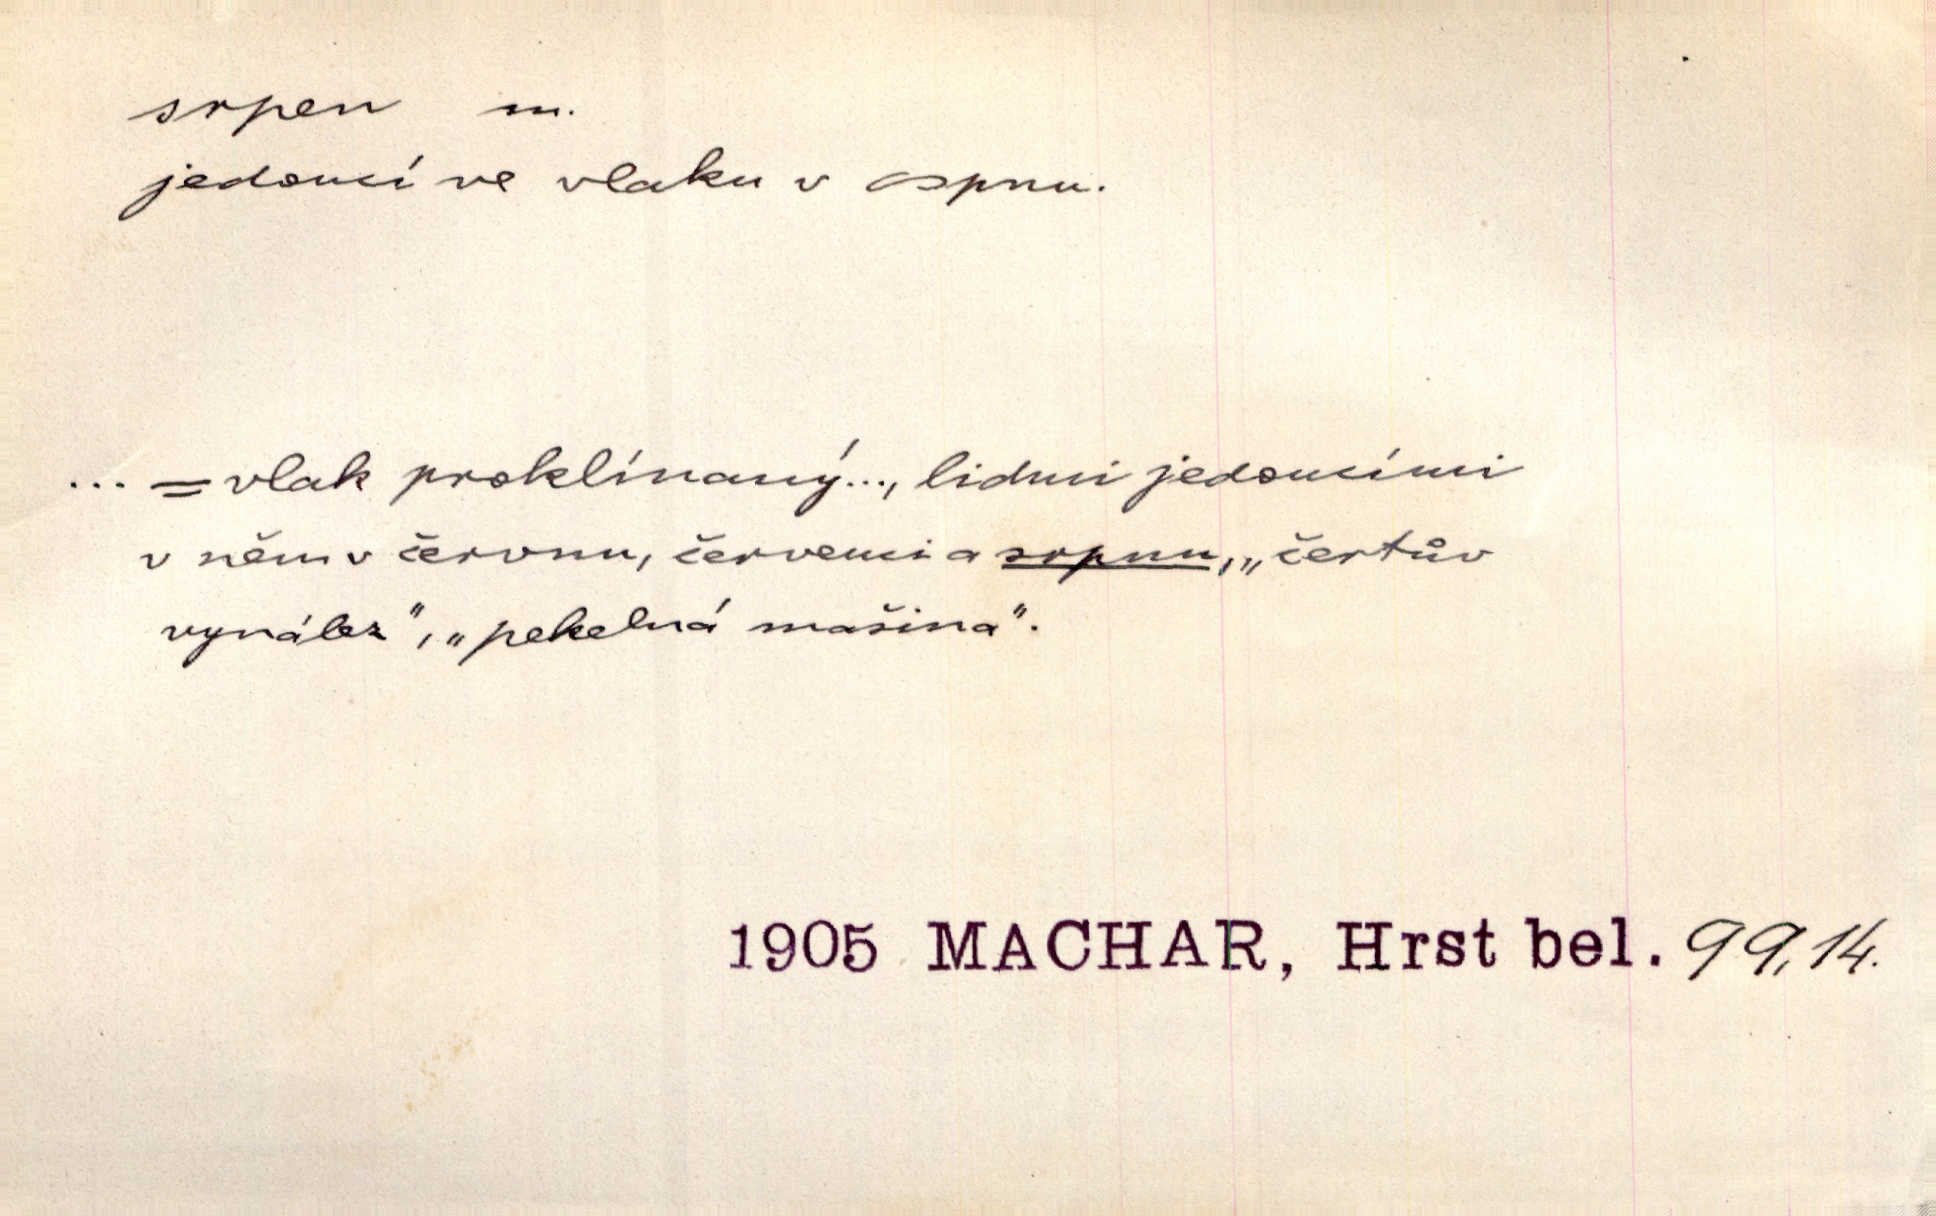 srpen m.
jedoucí ve vlaku v srpnu.
... = vlak proklínaný..., lidmi jedoucími
v něm v červnu, červenci a srpnu, „čertův
vynález", „pekelná mašina".
1905 MACHAR, Hrst bel. 99,14.